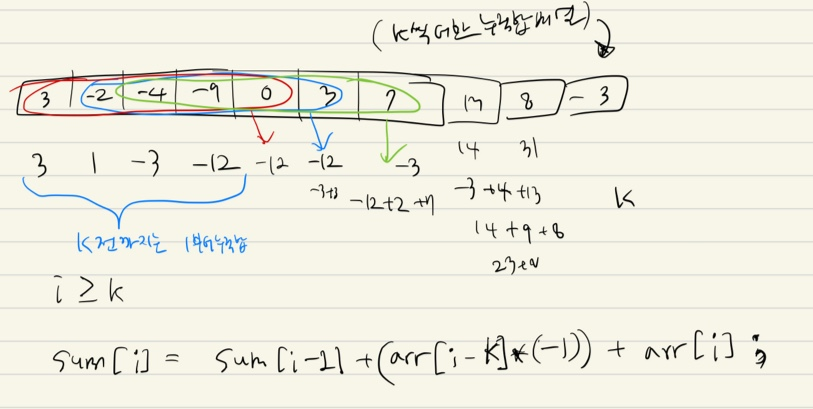 (K씩 더한 누적합 배열)
3 -2 -4 -9 0 3 7 13 8 -3
3 1 -3 -12 -12 -12 -3 14 31
-3+3 -12+2+7 -3+4+13 K
K전까지는 1부터 누적합 14+9+8
i ≥ k
sum[i] = sum[i-1] + (arr[i-K]*(-1)) + arr[i];